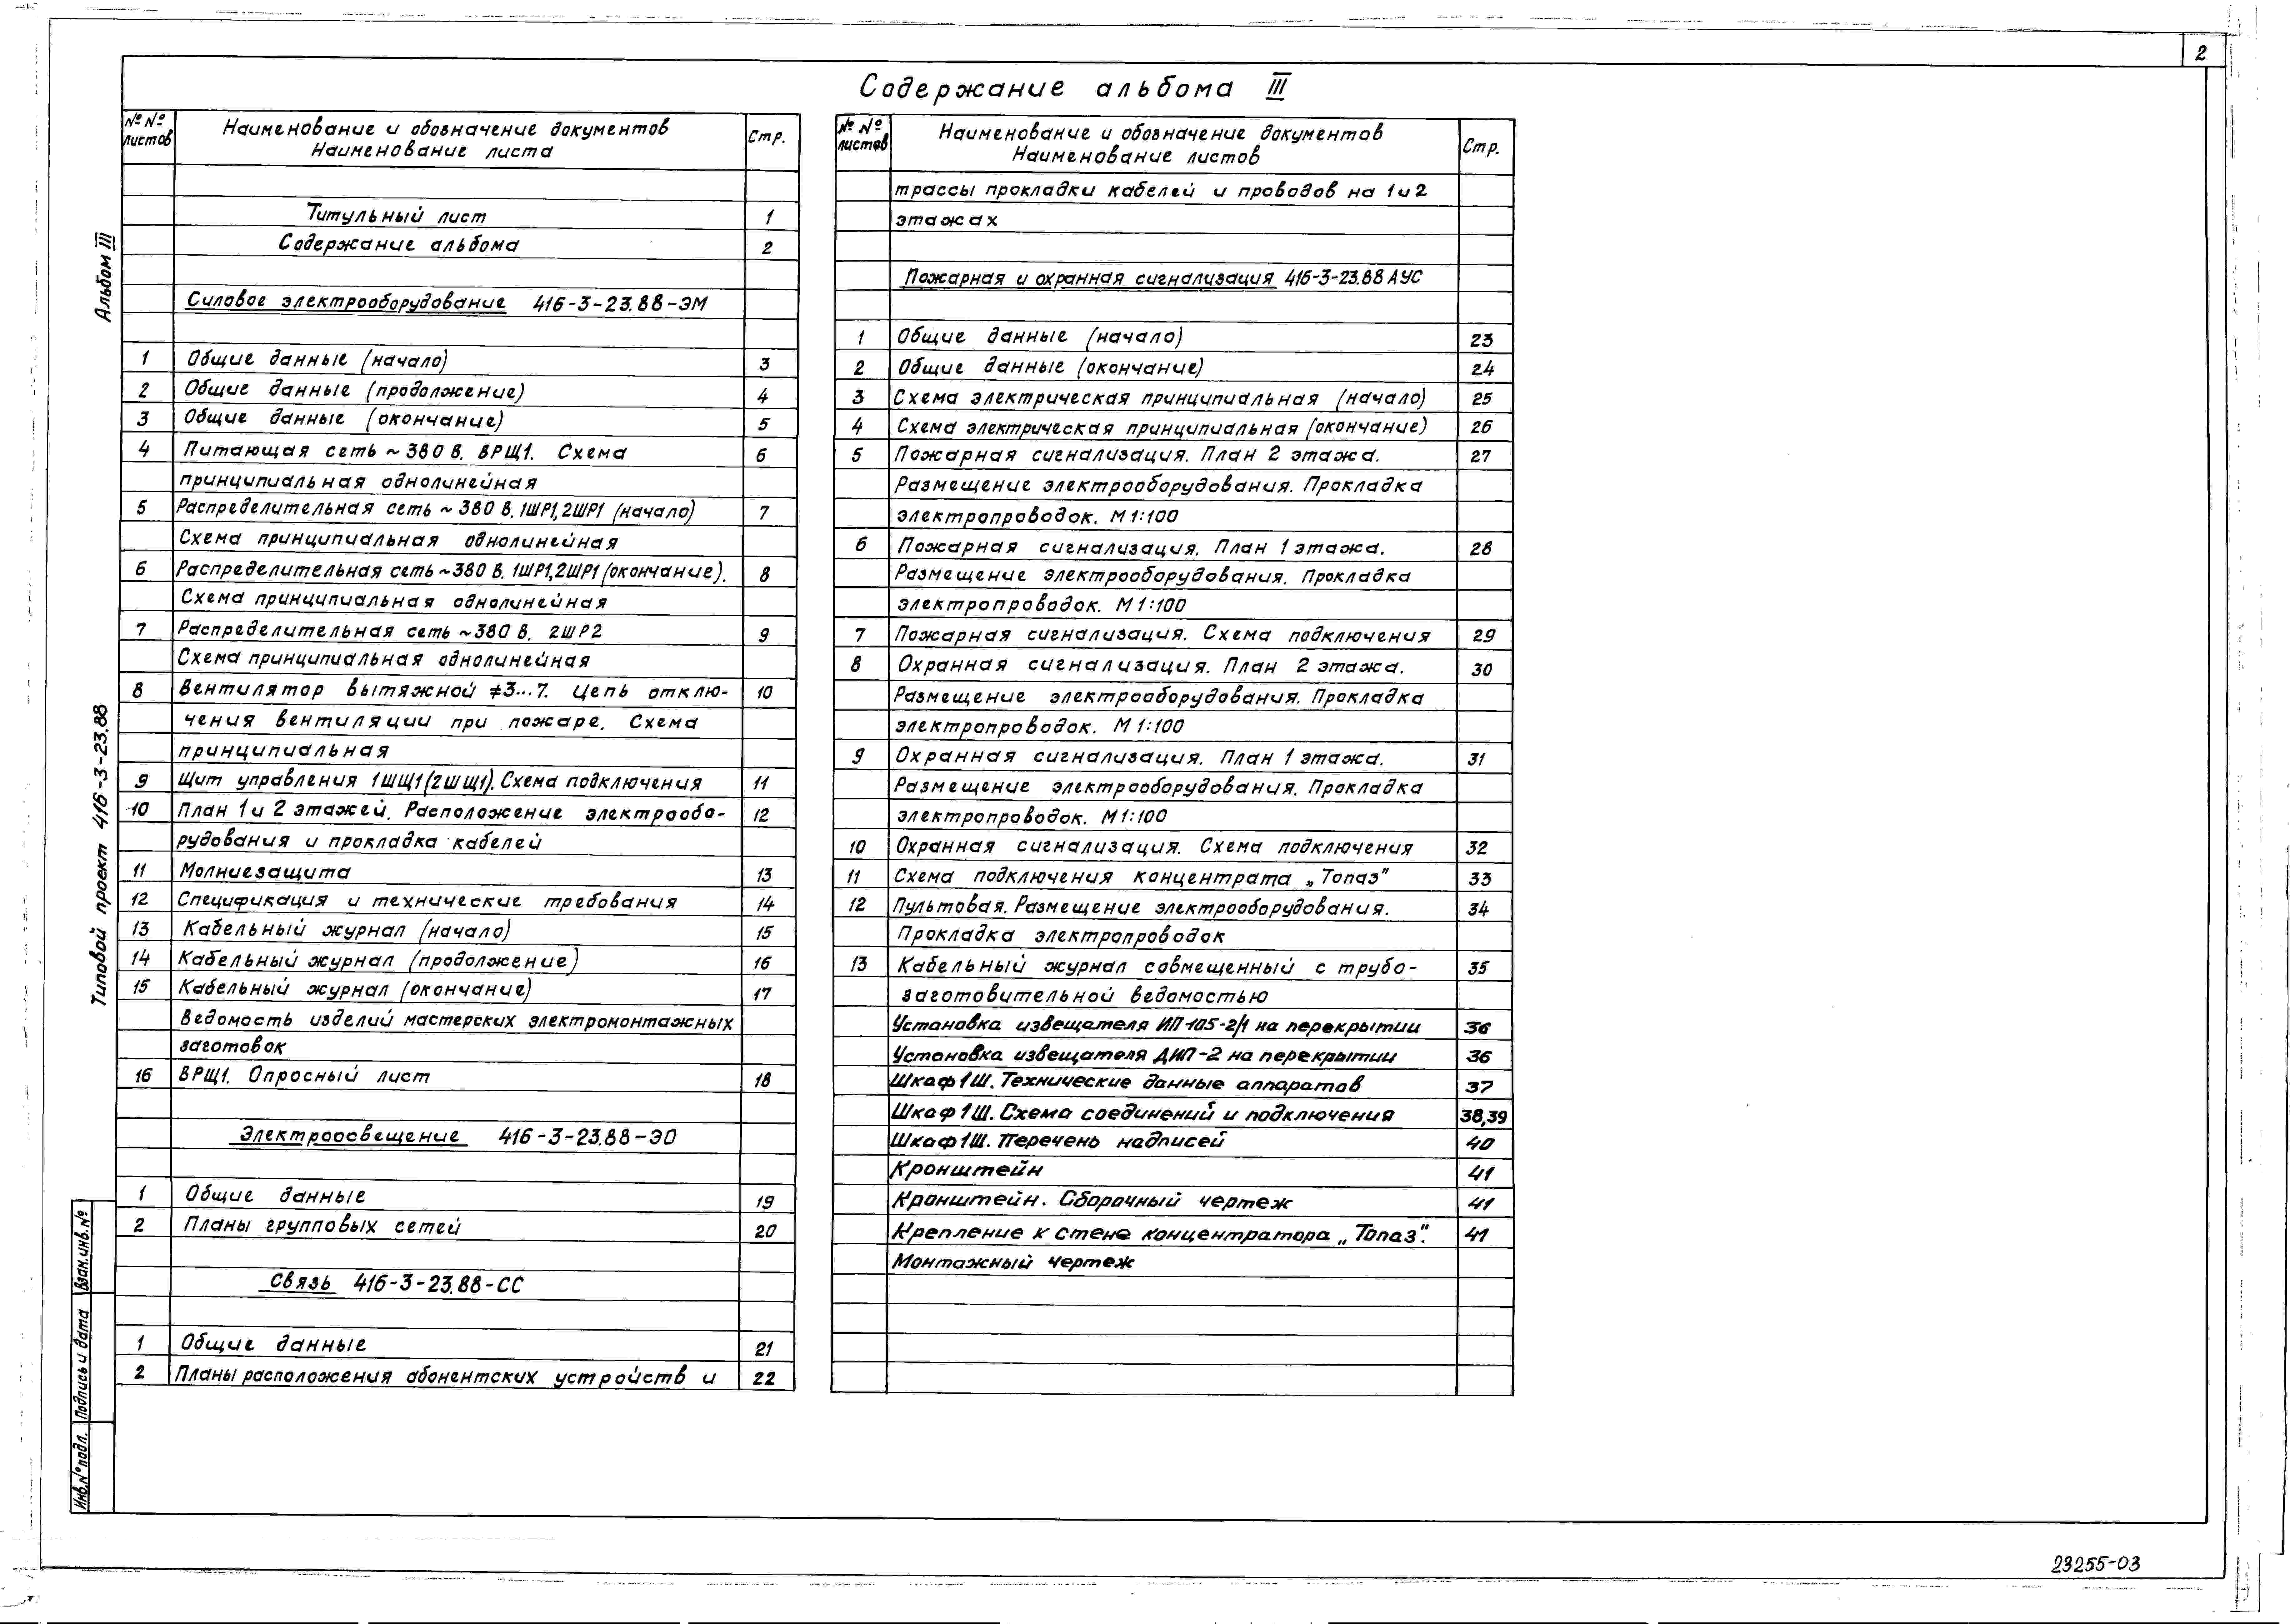 2
Содержание альбома III
№№ листов
Наименование и обозначение документов
Наименование листа
Стр.
Титульный лист 1
Содержание альбома 2
Силовое электрооборудование 416-3-23.88-ЭМ
1 Общие данные (начало) 3
2 Общие данные (продолжение) 4
3 Общие данные (окончание) 5
4 Питающая сеть ~380 В. ВРЩ1. Схема 6
принципиальная однолинейная
5 Распределительная сеть ~380 В. 1ШР1, 2ШР1 (начало) 7
Схема принципиальная однолинейная
6 Распределительная сеть ~380 В. 1ШР1, 2ШР1 (окончание). 8
Схема принципиальная однолинейная
7 Распределительная сеть ~380 В. 2ШР2 9
Схема принципиальная однолинейная
8 Вентилятор вытяжной №3...7. Цепь отклю- 10
чения вентиляции при пожаре. Схема
принципиальная
9 Щит управления 1ШЩ1 (2ШЩ1). Схема подключения 11
10 План 1 и 2 этажей. Расположение электрообо- 12
рудования и прокладка кабелей
11 Молниезащита 13
12 Спецификация и технические требования 14
13 Кабельный журнал (начало) 15
14 Кабельный журнал (продолжение) 16
15 Кабельный журнал (окончание) 17
Ведомость изделий мастерских электромонтажных
заготовок
16 ВРЩ1. Опросный лист 18
Электроосвещение 416-3-23.88-ЭО
1 Общие данные 19
2 Планы групповых сетей 20
Связь 416-3-23.88-СС
1 Общие данные 21
2 Планы расположения абонентских устройств и 22
№№ листов
Наименование и обозначение документов
Наименование листов
Стр.
трассы прокладки кабелей и проводов на 1 и 2
этажах
Пожарная и охранная сигнализация 416-3-23.88 АУС
1 Общие данные (начало) 23
2 Общие данные (окончание) 24
3 Схема электрическая принципиальная (начало) 25
4 Схема электрическая принципиальная (окончание) 26
5 Пожарная сигнализация. План 2 этажа. 27
Размещение электрооборудования. Прокладка
электропроводок. М 1:100
6 Пожарная сигнализация. План 1 этажа. 28
Размещение электрооборудования. Прокладка
электропроводок. М 1:100
7 Пожарная сигнализация. Схема подключения 29
8 Охранная сигнализация. План 2 этажа. 30
Размещение электрооборудования. Прокладка
электропроводок. М 1:100
9 Охранная сигнализация. План 1 этажа. 31
Размещение электрооборудования. Прокладка
электропроводок. М 1:100
10 Охранная сигнализация. Схема подключения 32
11 Схема подключения концентрата „Топаз" 33
12 Пультовая. Размещение электрооборудования. 34
Прокладка электропроводок
13 Кабельный журнал совмещенный с трубо- 35
заготовительной ведомостью
Установка извещателя ИП-105-2/1 на перекрытии 36
Установка извещателя ДИП-2 на перекрытии 36
Шкаф 1Ш. Технические данные аппаратов 37
Шкаф 1Ш. Схема соединений и подключения 38,39
Шкаф 1Ш. Перечень надписей 40
Кронштейн 41
Кронштейн. Сборочный чертеж 41
Крепление к стене концентратора „Топаз". 41
Монтажный чертеж
Альбом III
Типовой проект 416-3-23.88
Взам.инв.№
Подпись и дата
Инв.№подл.
23255-03